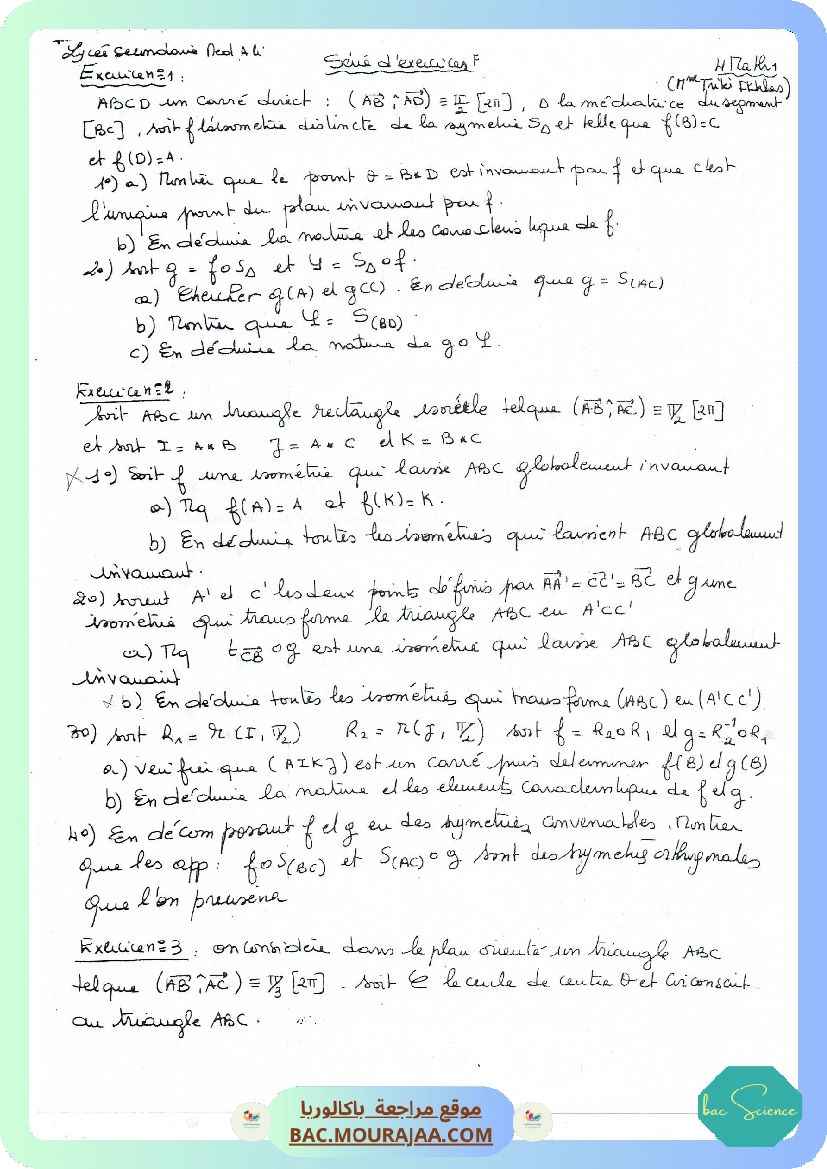 Lycée secondaire Med Ali
Série d'exercices
4 Maths
(Mme Triki Ikhlas)
Exercice n=1 :
ABCD un carré direct : (AB ^ AD) ≡ π/2 [2π], Δ la médiatrice du segment
[BC], soit f l'isométrie distincte de la symétrie SΔ et telle que f(B)=C
et f(D)=A.
1°) a) Montrer que le point O = B*D est invariant par f et que c'est
l'unique point du plan invariant par f.
b) En déduire la nature et les caractéristique de f.
2°) soit g = f o SΔ et φ = SΔ o f.
a) Chercher g(A) et g(C). En déduire que g = S(AC)
b) Montrer que φ = S(BD).
c) En déduire la nature de g o φ.
Exercice n=2 :
Soit ABC un triangle rectangle isocèle tel que (AB ^ AC) ≡ π/2 [2π]
et soit I = A * B J = A * C et K = B * C
1°) Soit f une isométrie qui laisse ABC globalement invariant
a) Mq f(A) = A et f(K) = K.
b) En déduire toutes les isométries qui laissent ABC globalement
invariant.
2°) soient A' et C' les deux points définis par AA' = CC' = BC et g une
isométrie qui transforme le triangle ABC en A'CC'
a) Mq t CB o g est une isométrie qui laisse ABC globalement
invariant
b) En déduire toutes les isométries qui transforme (ABC) en (A'CC')
3°) soit R1 = r(I, π/2) R2 = r(J, π/2) soit f = R2 o R1 et g = R2⁻¹ o R1
a) Verifier que (AIKJ) est un carré puis determiner f(B) et g(B)
b) En déduire la nature et les elements caracteristique de f et g.
4°) En décomposant f et g en des symetries convenables. Montrer
que les app : f o S(BC) et S(AC) o g sont des symetries orthogonales
que l'on precisera
Exercice n=3 : on considère dans le plan orienté un triangle ABC
tel que (AB ^ AC) ≡ π/3 [2π]. soit C le cercle de centre O et circonscrit
au triangle ABC.
موقع مراجعة باكالوريا
BAC.MOURAJAA.COM
bac Science